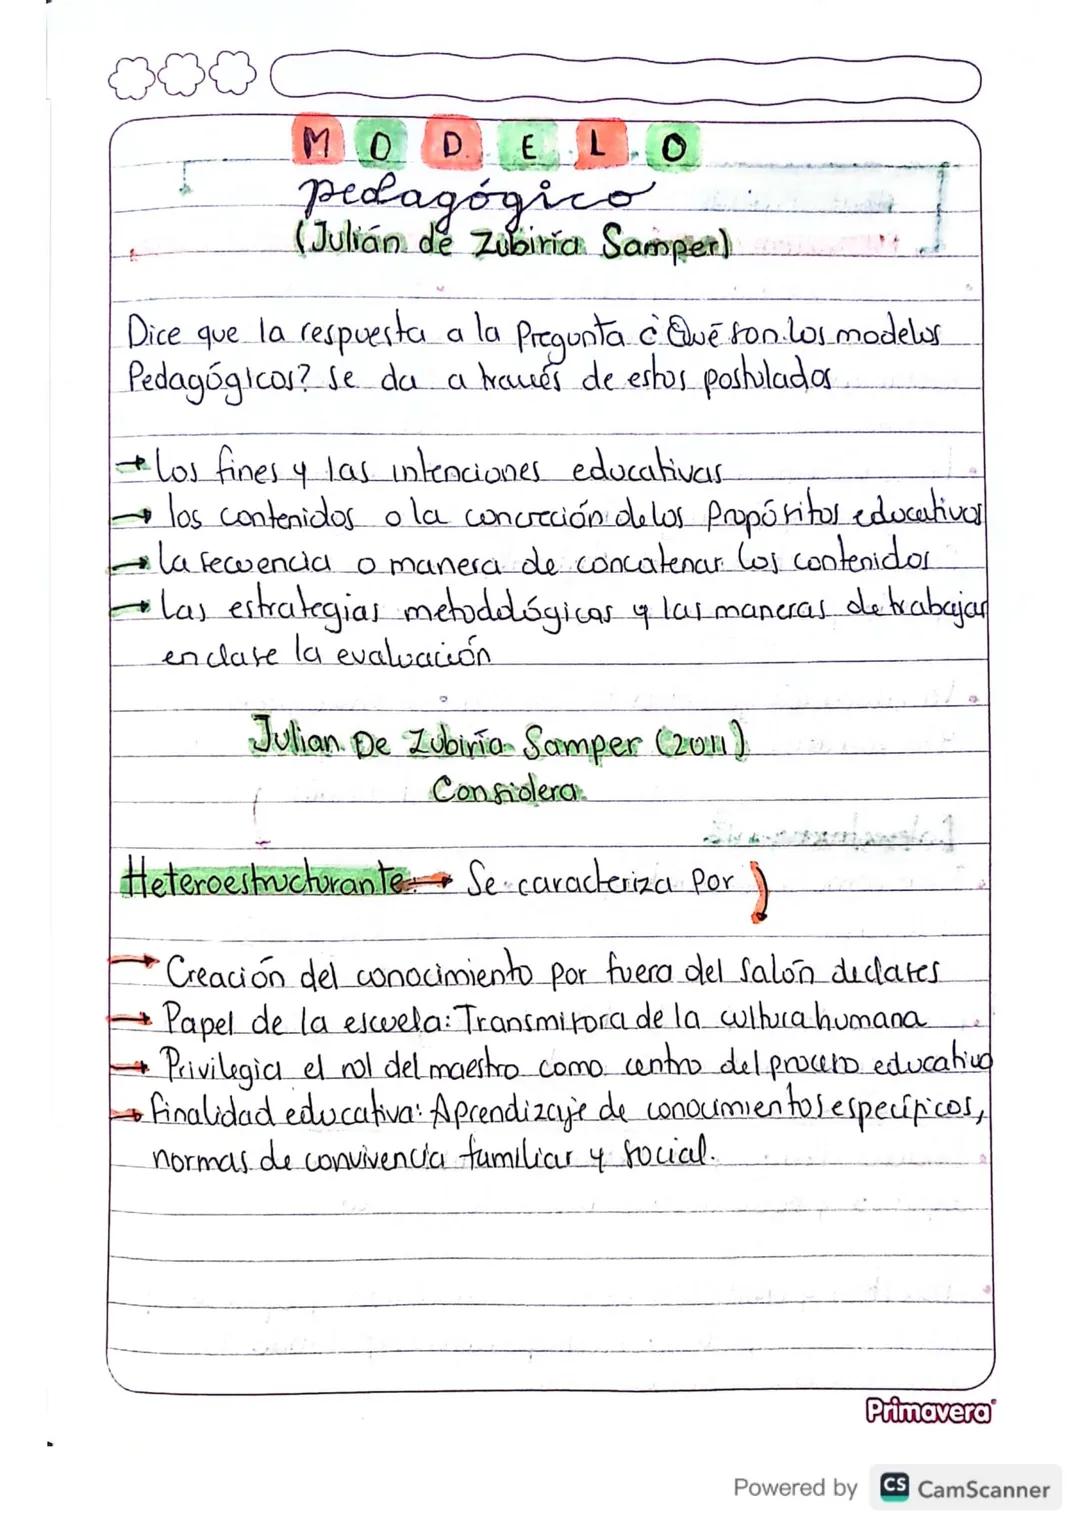 MODELO
pedagógico
(Julián de Zubiría Samper)
Dice que la respuesta a la Pregunta ¿Qué son los modelos
Pedagógicos? se da a través de estos postulados
→ los fines y las intenciones educativas
→ los contenidos o la concreción de los Propósitos educativos
→ La secuencia o manera de concatenar los contenidos
→ Las estrategias metodológicas y las maneras de trabajar
en clase la evaluación
Julian De Zubiría Samper (2011)
Considera
Heteroestructurante → Se caracteriza Por
→ Creación del conocimiento por fuera del salón de clases
→ Papel de la escuela: Transmisora de la cultura humana
→ Privilegia el rol del maestro como centro del proceso educativo
→ finalidad educativa: Aprendizaje de conocimientos específicos,
normas de convivencia familiar y social.
Primavera
Powered by CS CamScanner